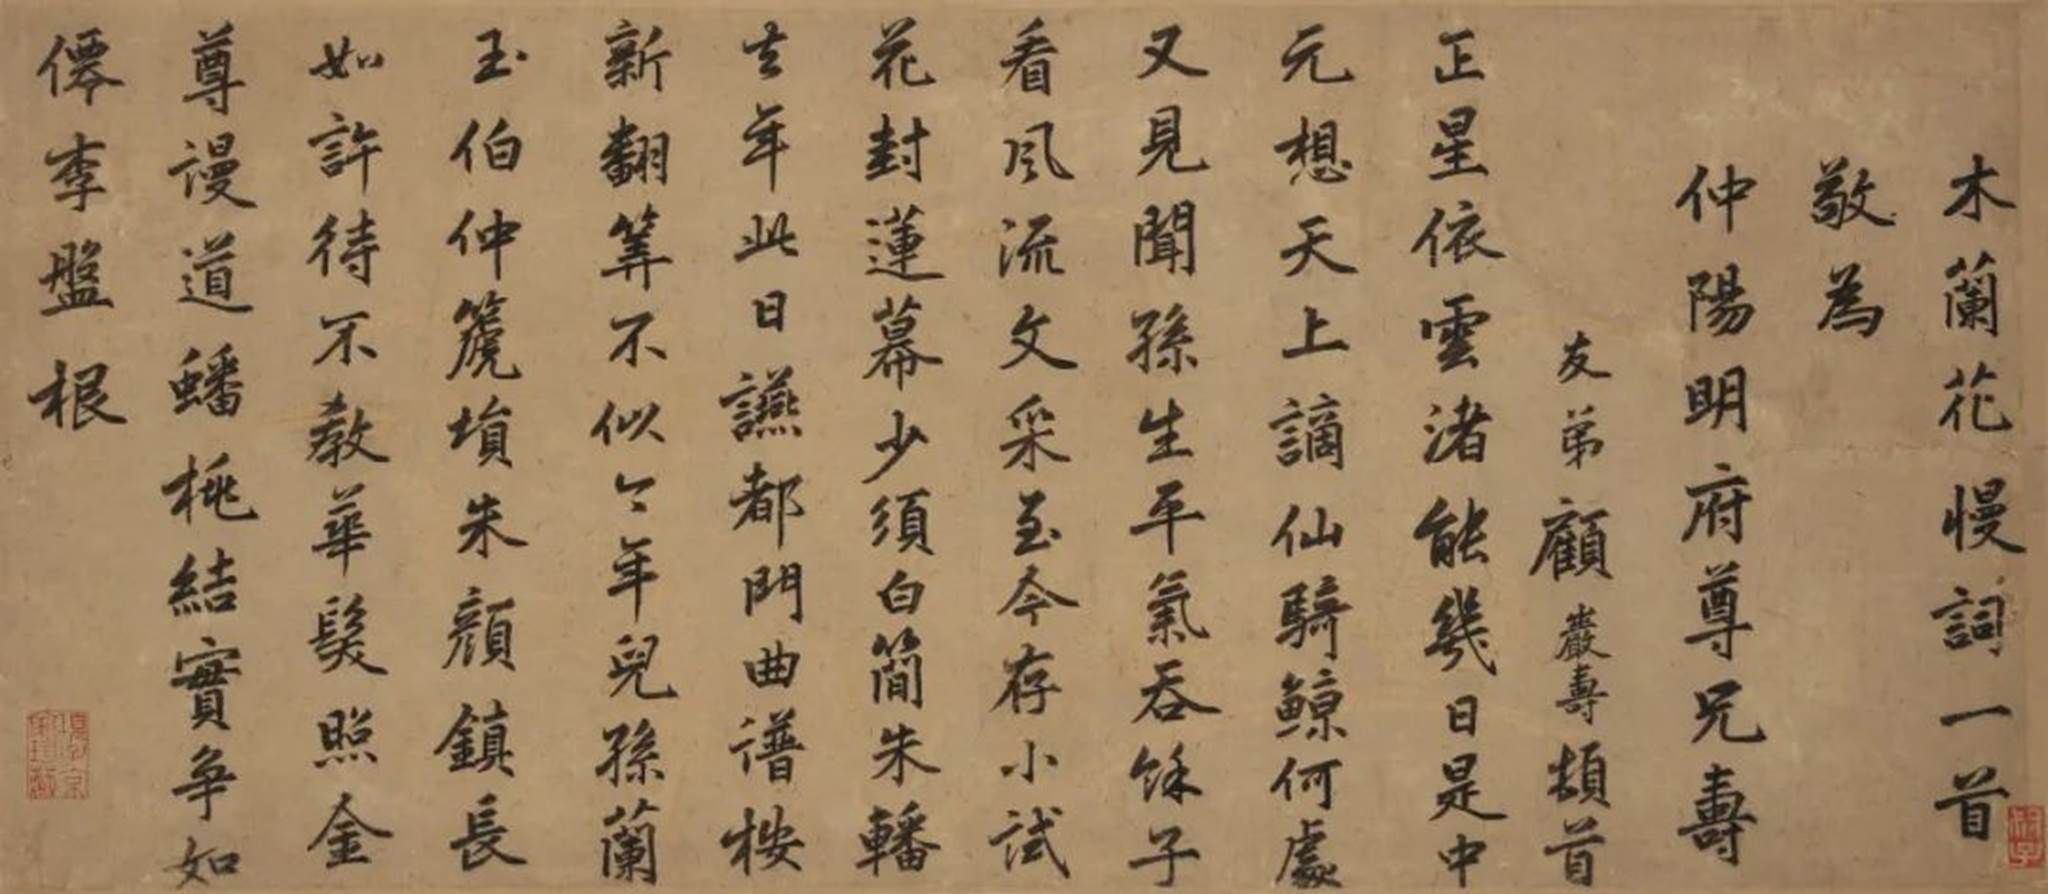 木蘭花慢詞一首
敬為
仲陽明府尊兄壽
友弟顧巖壽頓首
正星依雲渚能幾日是中
元想天上謫仙騎鯨何處
又見聞孫生平氣吞餘子
看風流文采至今存小試
花封蓮幕少須白簡朱轓
去年此日讌都門曲譜桉
新翻算不似今年兒孫蘭
玉伯仲箎塤朱顏鎮長
如許待不教華髮照金
尊謾道蟠桃結實爭如
僊李盤根